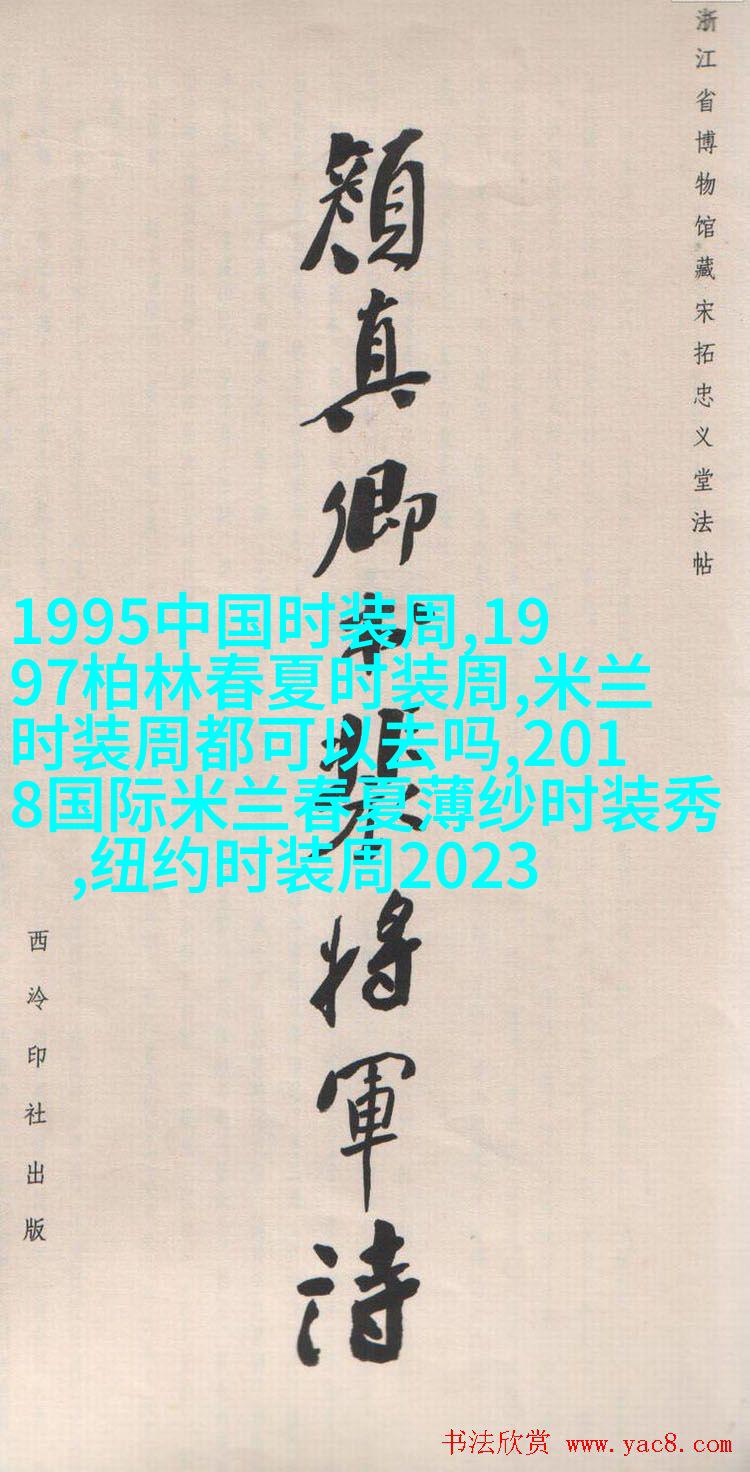 浙江省博物馆藏宋拓忠义堂法帖
顔真卿奉裴将軍詩
西泠印社出版
1995中国时装周,19
97柏林春夏时装周,米兰
时装周都可以去吗,201
8国际米兰春夏薄纱时装秀
,纽约时装周2023
书法欣赏 www.yac8.com